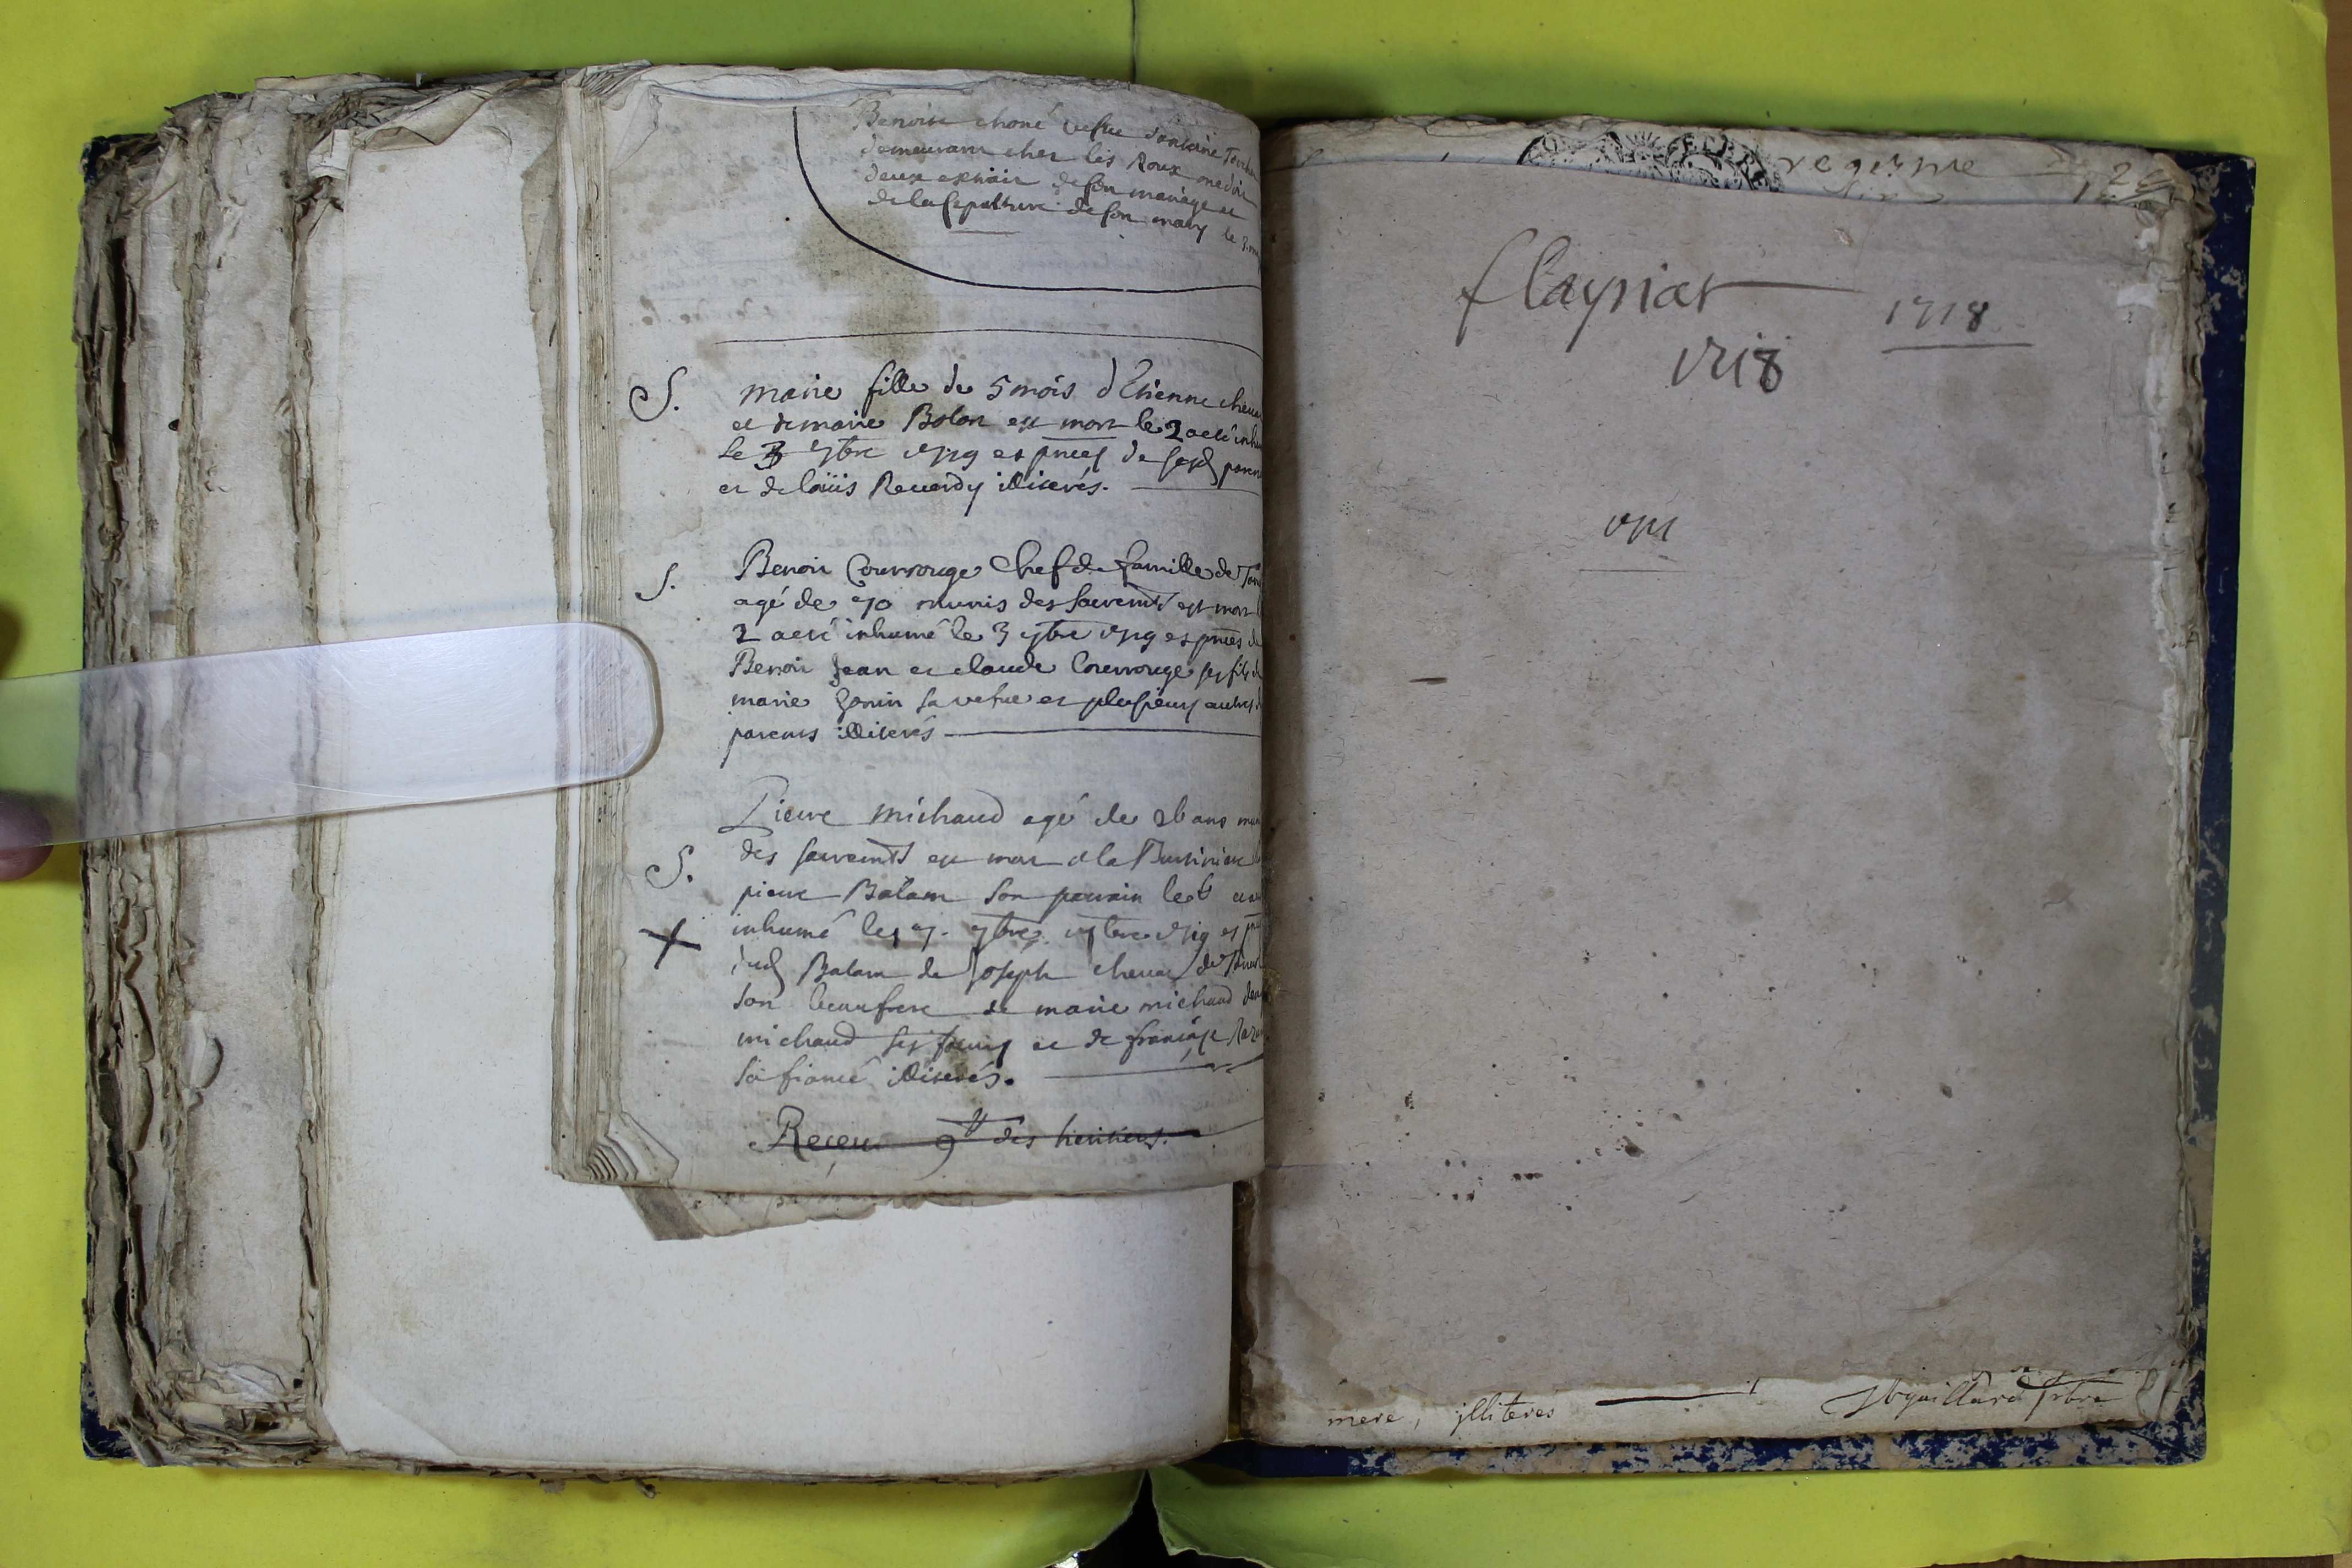 Benoite chone vefue dantoine
demeurant cher les Roux me doit
deux extrait de son mariage et
de la sepulture de son mary le
S. marie fille de 5 mois d'Etienne
et de marie Bolon est mort le 2 a eté
le 3 7bre 1719 es pnces de sesd
et de loüis Reverdy illiterés.
S. Benoit Courrouge chef de famille de
agé de 70 munis des sacremts est mort
2 a eté inhumé le 3 7bre 1719 es pnces de
Benoit Jean et claude Courrouge ses fils de
marie Gonin sa vefue et plusieurs autres
parents illiterés
Pierre michaud agé de 26 ans
S. des sacremts est mort a la
pierre Balam son parrain le 6
+ inhumé les 7. 7bre. 1719 es
dud Balam de Joseph
son beaufrere de marie michaud
michaud ses soeurs et de françoise
sa fiancé illiterés.
Receu 9 des heritiers.
flayriat
1718
1718
1711
mere, illiteres